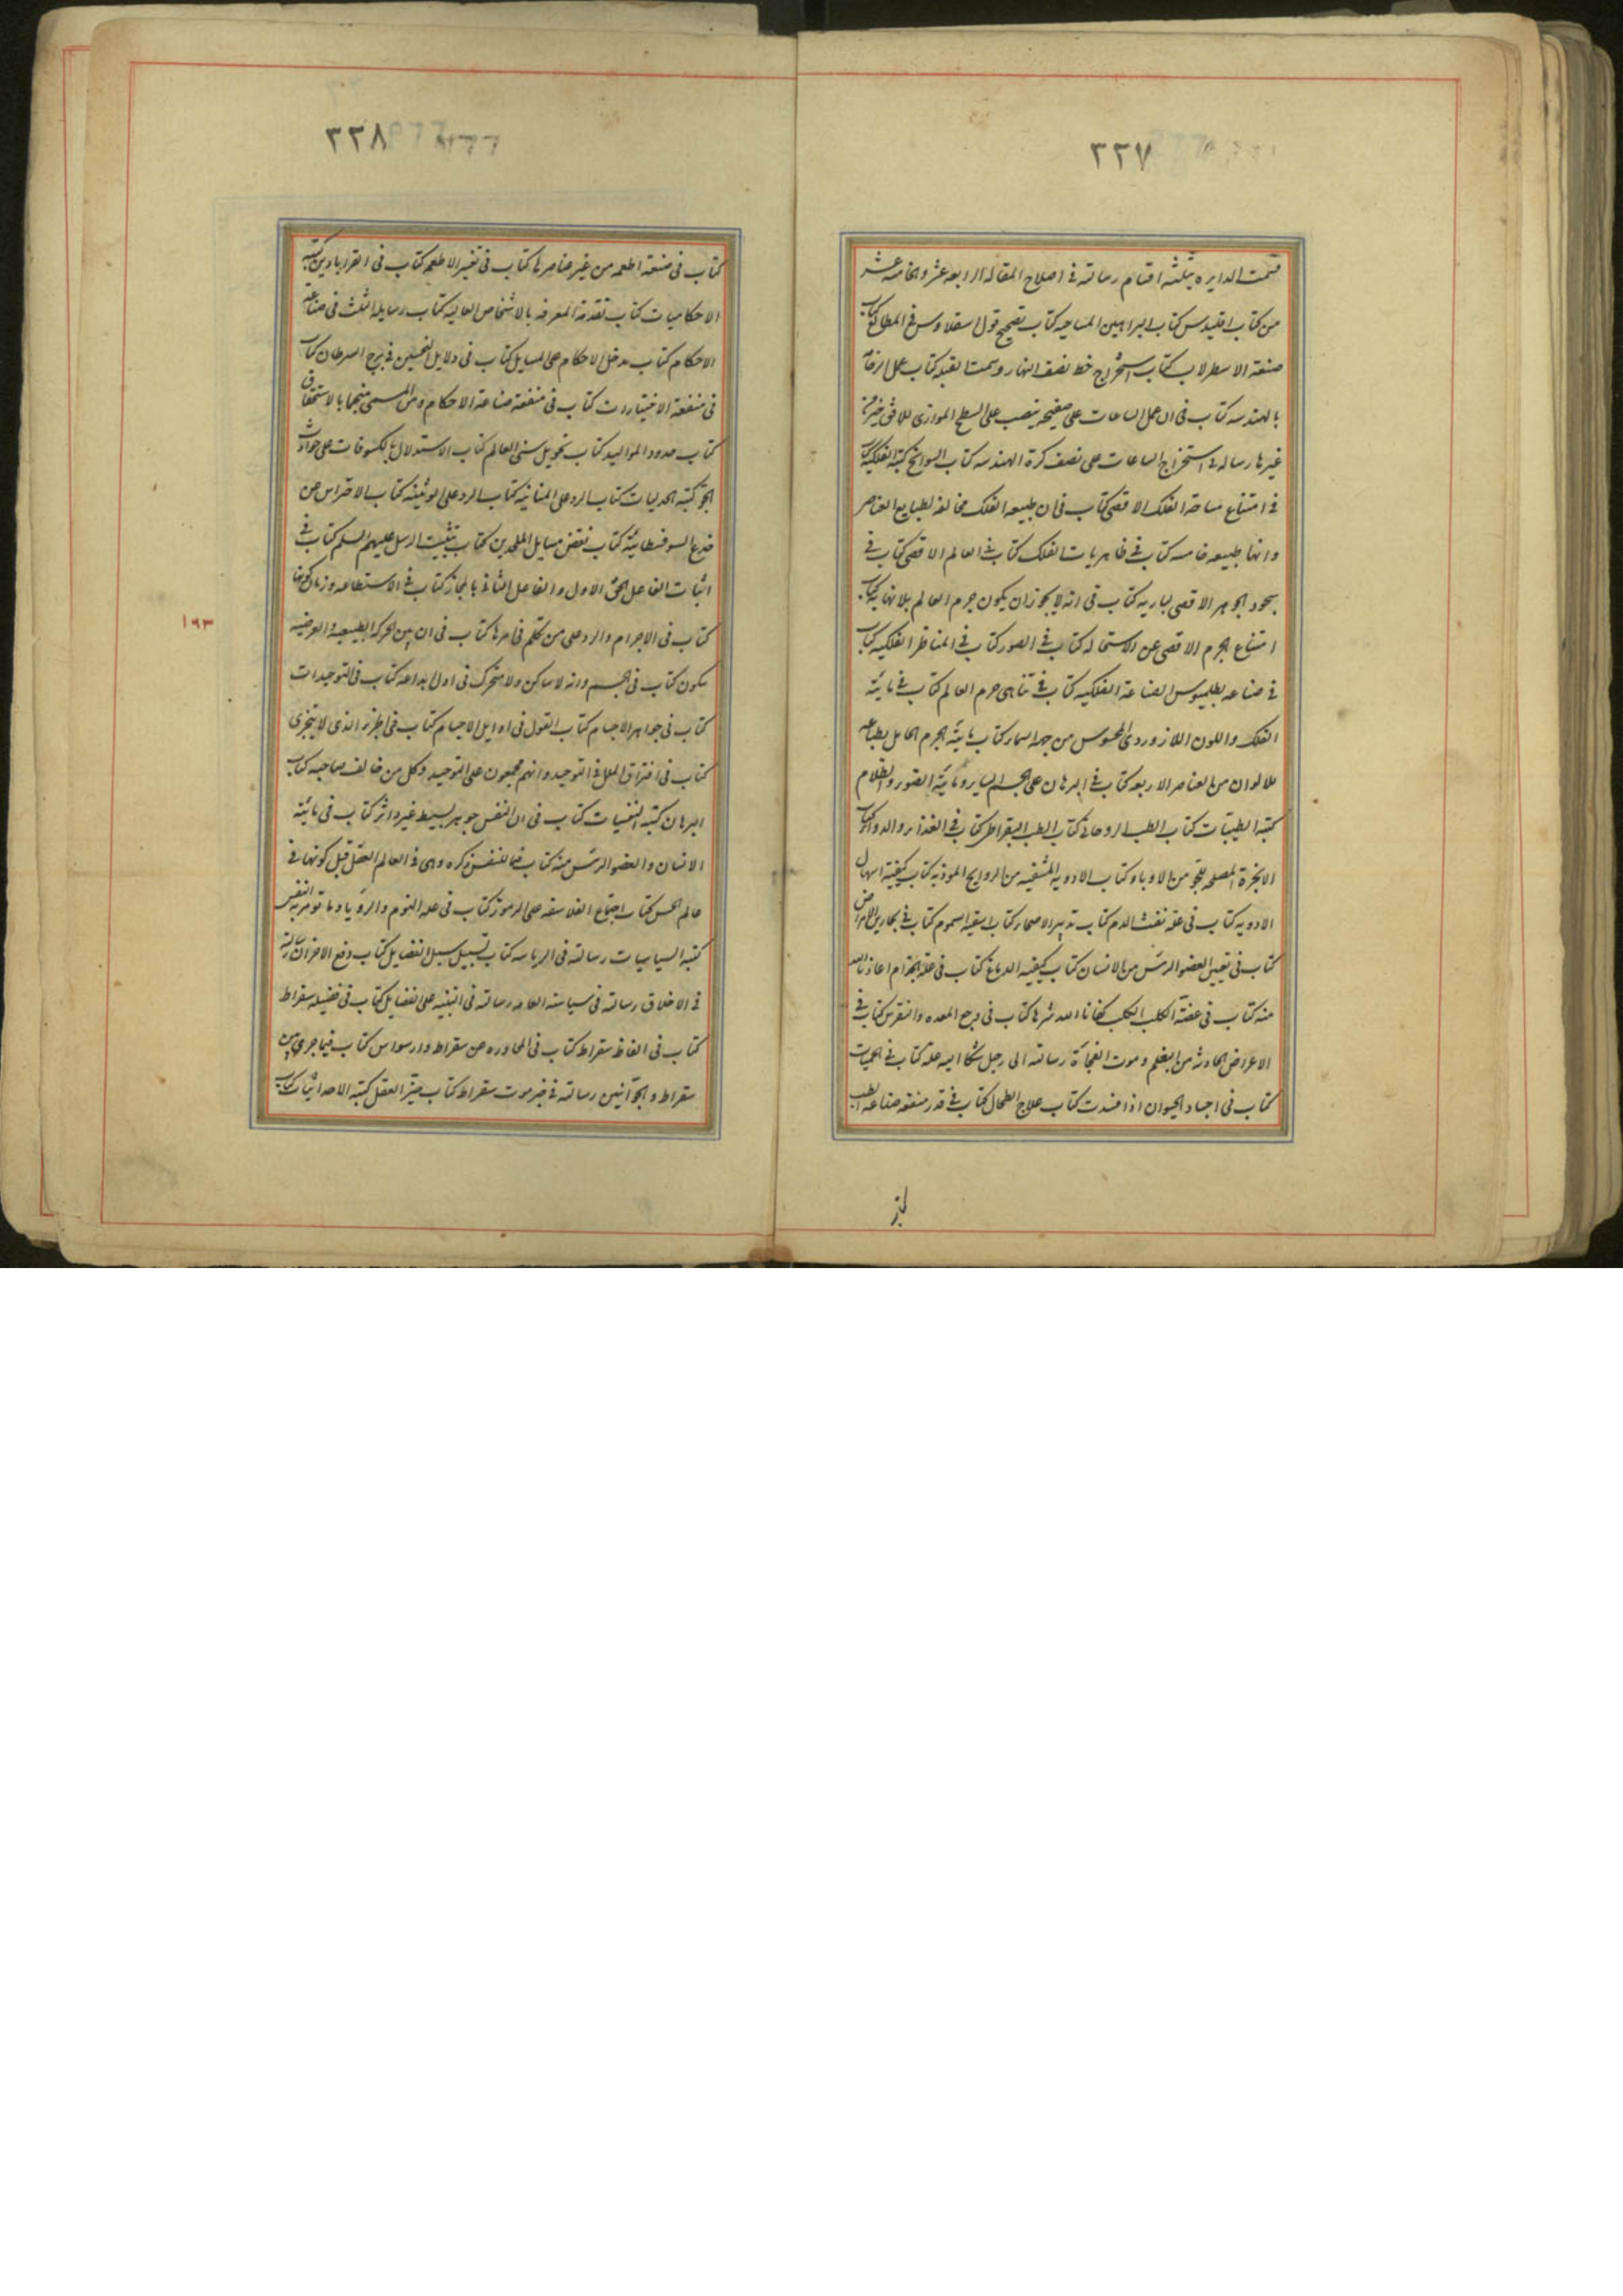 ٢٢٧
قسمت الدايره بثلثه اقسام رسالته فى اصلاح المقاله الرابعه عشر والخامسه عشر
من كتاب اقليدس كتاب البراهين المساحيه كتاب تصحيح قول اسقلاوس فى المطالع كتاب
صنعة الاسطرلاب كتاب استخراج خط نصف النهار وسمت القبله كتاب عمل الرخامه
بالهندسه كتاب فى ان عمل الساعات على صفيحه ينصب على السطح الموازى للافق خير من
غيرها رساله فى استخراج الساعات على نصف كرة الهندسه كتاب السوانح كتبه الفلكيه كتاب
فى امتناع مساحة الفلك الاقصى كتاب فى ان طبيعه الفلك مخالفه لطبايع العناصر
وانها طبيعه خامسه كتاب فى ظاهريات الفلك كتاب فى العالم الاقصى كتاب فى
سجود الجوهر الاقصى لباريه كتاب فى انه لا يجوز ان يكون جرم العالم بلا نهايه كتاب
امتناع الجرم الاقصى عن الاستحاله كتاب فى الصور كتاب فى المناظر الفلكيه كتاب
فى صناعه بطلميوس الصناعة الفلكيه كتاب فى تناهى جرم العالم كتاب فى مائية
الفلك واللون اللازوردى المحسوس من جهة السماء كتاب مائية الجرم الحامل بطباعه
للالوان من العناصر الاربعه كتاب فى البرهان على الجسم الساير ومائية الضوء والظلام
كتبه الطبيات كتاب الطب الروحانى كتاب الطب البقراطى كتاب فى الغذاء والدواء كتاب
الابخرة المصلحه للجو من الاوباء كتاب الادويه المشفيه من الروايح الموذيه كتاب كيفية اسهال
الادويه كتاب فى علة نفث الدم كتاب تدبير الاصحاء كتاب اسقيه السموم كتاب فى بحارين الامراض
كتاب فى تعيين العضو الرئس من الانسان كتاب كيفيه الدماغ كتاب فى علة الجذام اعاذنا الله
منه كتاب فى عضة الكلب الكلب كفانا الله شرها كتاب فى وجع المعده والنقرس كتاب فى
الاعراض الحادثه من البلغم وموت الفجأة رسالته الى رجل شكا اليه علة كتاب فى الحميات
كتاب فى اجساد الحيوان اذا فسدت كتاب علاج الطحال كتاب فى قدر منفعه صناعة الطب
٢٢٨
كتاب فى صنعة اطعمه من غير عناصرها كتاب فى تغير الاطعمه كتاب فى القراباذين كتبه
الاحكاميات كتاب تقدمة المعرفه بالاشخاص العاليه كتاب رسايله الثلث فى صناعة
الاحكام كتاب مدخل الاحكام على المسايل كتاب فى دلايل النحسين فى برج السرطان كتاب
فى منفعة الاختيارات كتاب فى منفعة صناعة الاحكام ومن المسمى منجما بالاستحقاق
كتاب حدود المواليد كتاب تحويل سنى العالم كتاب الاستدلال بالكسوفات على حوادث
الجو كتبه الجدليات كتاب الرد على المنانيه كتاب الرد على الوثنيه كتاب الاحتراس عن
خدع السوفسطائية كتاب نقض مسايل الملحدين كتاب تثبيت الرسل عليهم السلم كتاب فى
اثبات الفاعل الحق الاول والفاعل الثانى بالمجاز كتاب فى الاستطاعه وزمان كونها
١٩٣
كتاب فى الاجرام والرد على من تكلم فى امرها كتاب فى ان بين الحركه الطبيعيه والعرضيه
سكون كتاب فى الجسم وانه لا ساكن ولا متحرك فى اول ابداعه كتاب فى التوحيدات
كتاب فى جواهر الاجسام كتاب القول فى اوايل الاجسام كتاب فى الجزء الذى لا يتجزى
كتاب فى افتراق الملل فى التوحيد وانهم مجمعون على التوحيد وكل من خالف صاحبه كتاب
البرهان كتبه النفسيات كتاب فى ان النفس جوهر بسيط غير داثر كتاب فى مائية
الانسان والعضو الرئس منه كتاب فيما للنفس ذكره وهى فى العالم العقل قبل كونها فى
عالم الحس كتاب اجتماع الفلاسفه على الرموز كتاب فى علة النوم والرؤيا وما تومر به النفس
كتبه السياسيات رسالته فى الرياسه كتاب تسهيل سبل الفضايل كتاب دفع الاحزان رسالة
فى الاخلاق رسالته فى سياسته العامه رسالته فى التنبيه على الفضايل كتاب فى فضيله سقراط
كتاب فى الفاظ سقراط كتاب فى المحاوره عن سقراط وارسواس كتاب فيما جرى بين
سقراط والحرانيين رسالته فى خبر موت سقراط كتاب خبر العقل كتبه الاحداثيات كتاب